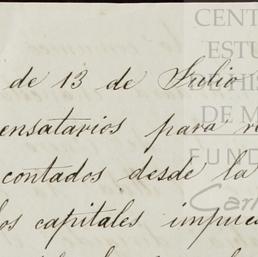 de 13 de Julio
ensatarios para r
contados desde la
os capitales impue
CENT
ESTU
HIS
DE M
FUND
Carl